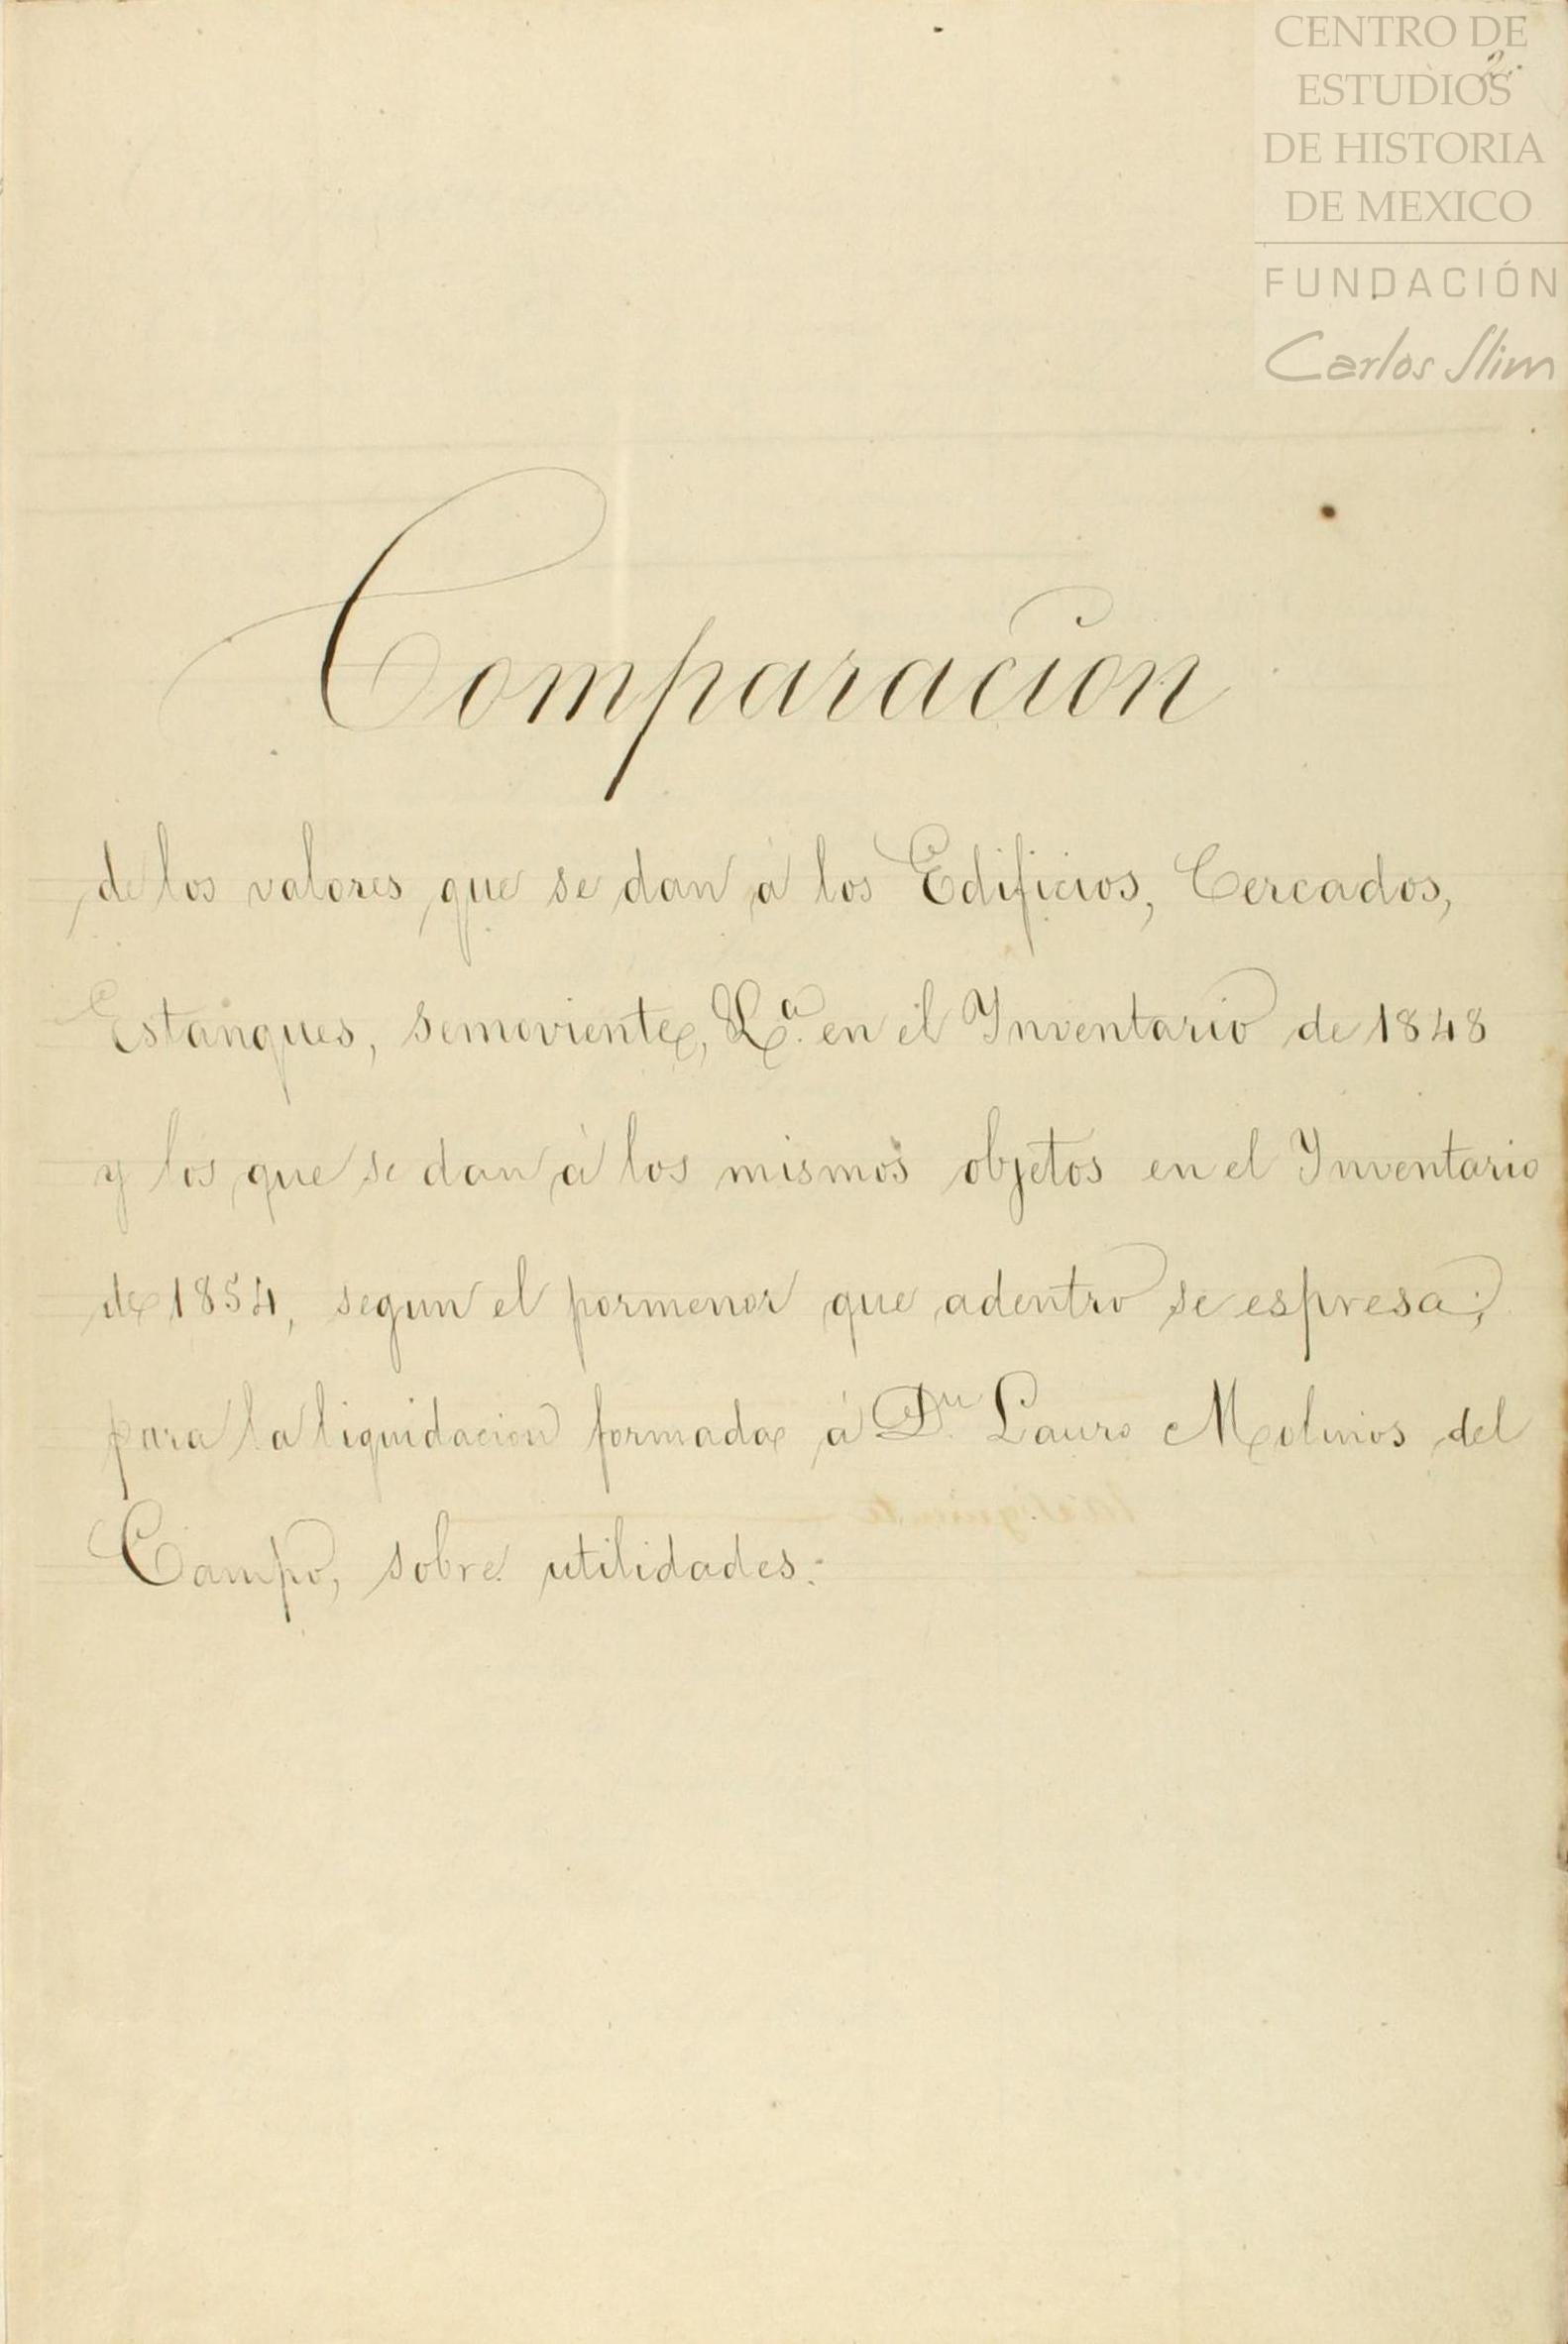 CENTRO DE
ESTUDIOS
DE HISTORIA
DE MEXICO
FUNDACIÓN
Carlos Slim
2.
Comparacion
de los valores que se dan á los Edificios, Cercados,
Estanques, semovientes, &.ª en el Ynventario de 1848
y los que se dan á los mismos objetos en el Ynventario
de 1854, segun el pormenor que adentro se espresa;
para la liquidacion formada á D.n Lauro Molinos del
Campo, sobre utilidades.